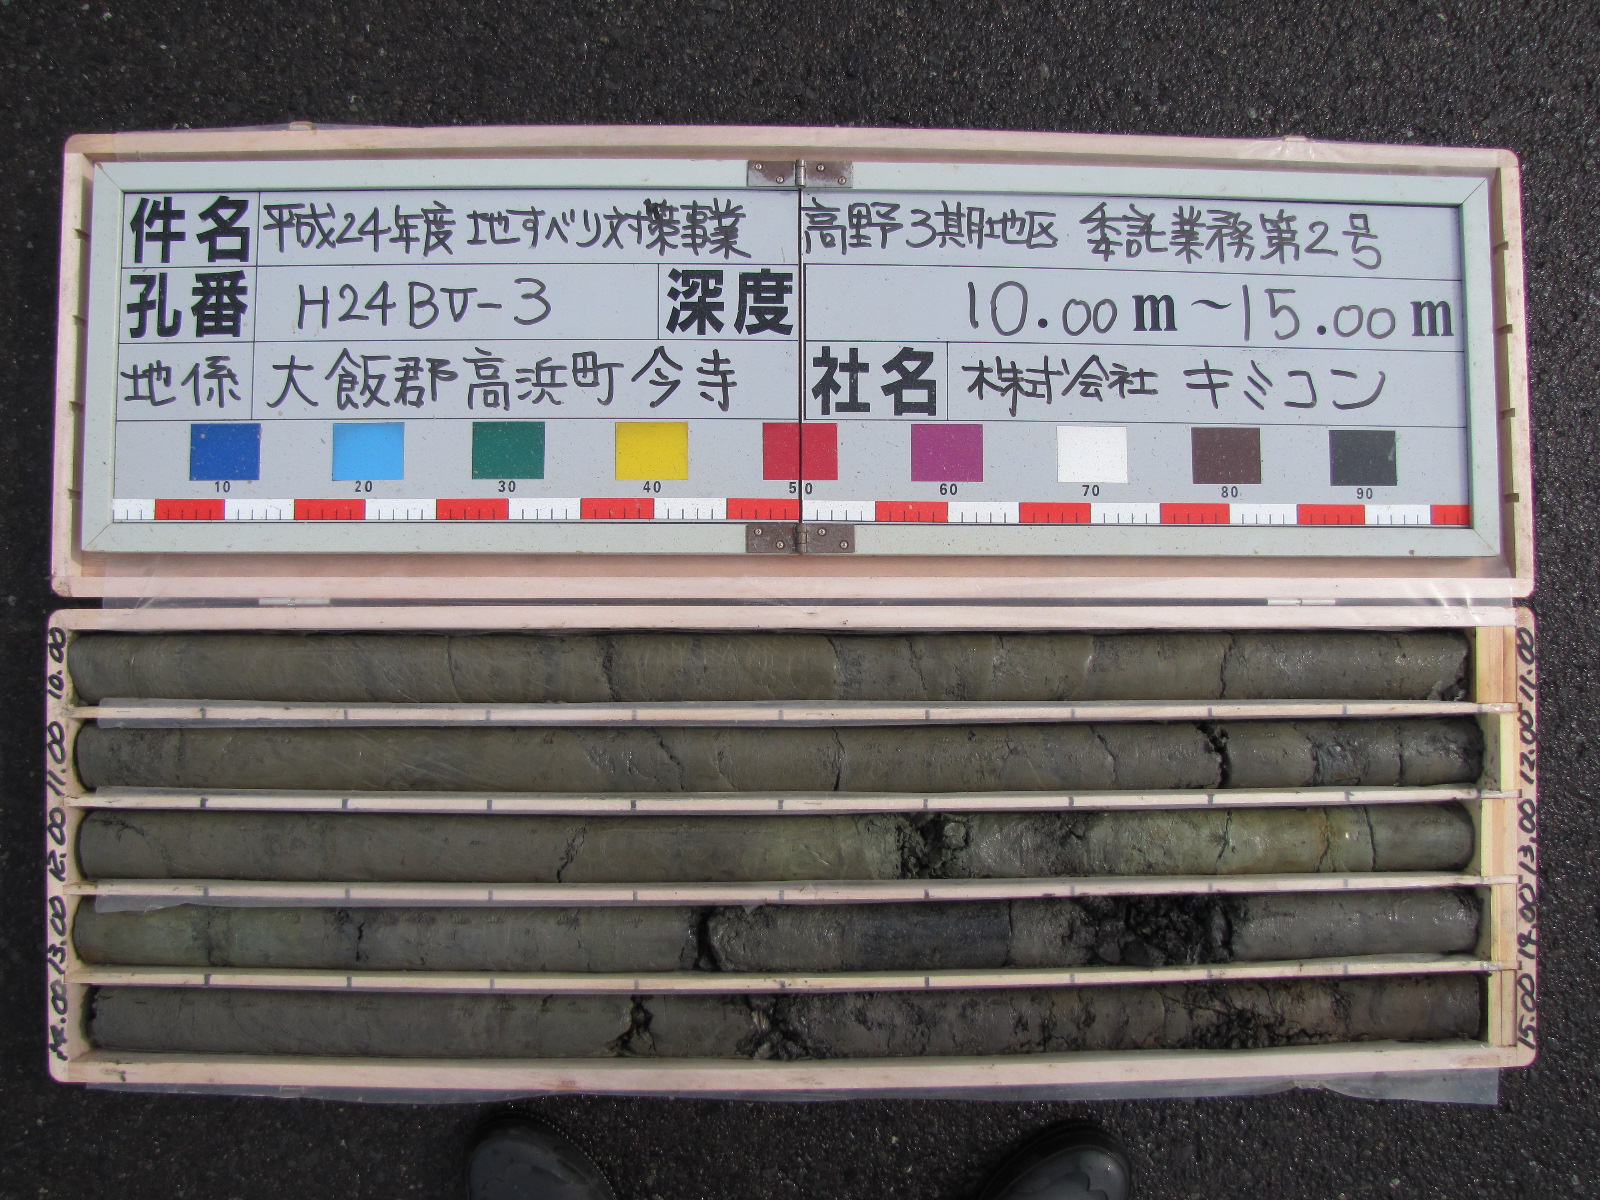 件名 平成24年度 地すべり対策事業 高野3期地区 委託業務第2号
孔番 H24BV-3 深度 10.00m~15.00m
地係 大飯郡高浜町今寺 社名 株式会社 キミコン
10 20 30 40 50 60 70 80 90
10.00 11.00
11.00 12.00
12.00 13.00
13.00 14.00
14.00 15.00